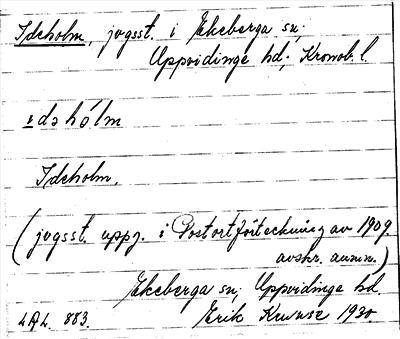 Ideholm, jvgsst. i Ekeberga sn,
Uppvidinge hd, Kronob. l.
ɪdəhólm
Ideholm.
(jvgsst. uppg. i Postortförteckning av 1909.
avskr. anm.)
Ekeberga sn, Uppvidinge hd.
LAL 883. Erik 1930